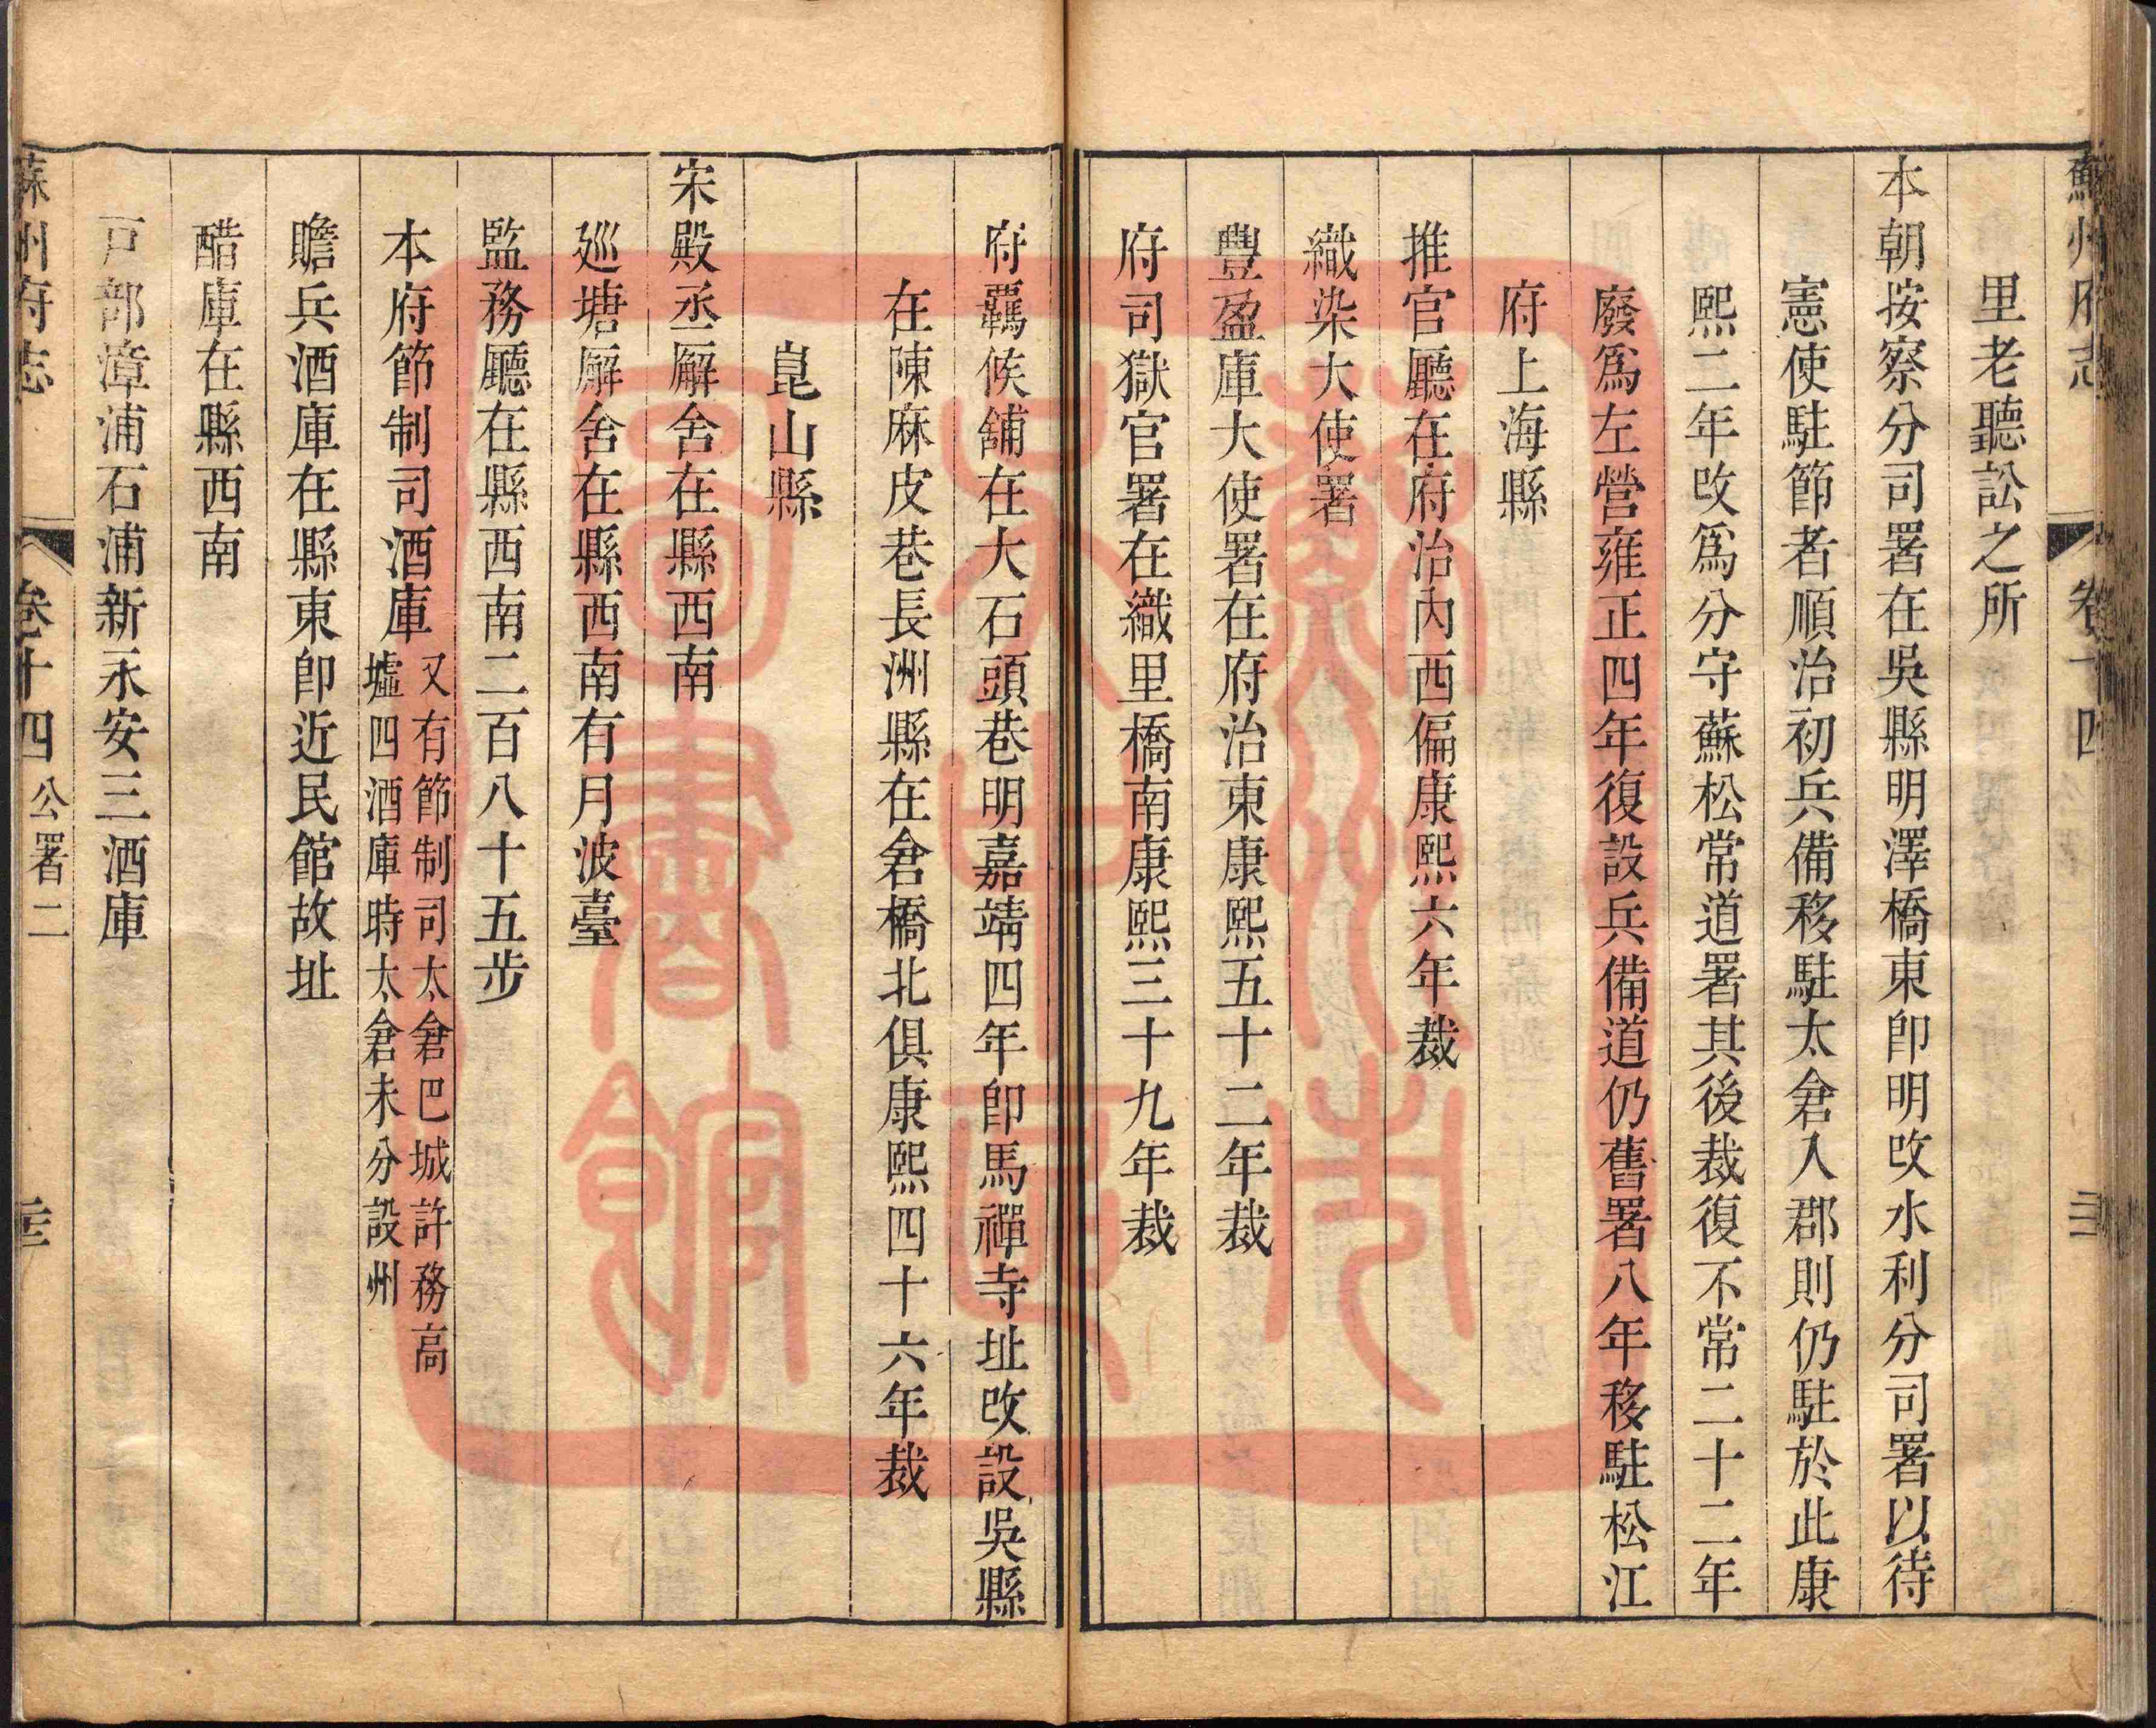 蘇州府志 卷十四
里老聽訟之所
本朝按察分司署在吳縣明澤橋東卽明改水利分司署以待
憲使駐節者順治初兵備移駐太倉入郡則仍駐於此康
熙二年改爲分守蘇松常道署其後裁復不常二十二年
廢爲左營雍正四年復設兵備道仍舊署八年移駐松江
府上海縣
推官廳在府治內西偏康熙六年裁
織染大使署
豐盈庫大使署在府治東康熙五十二年裁
府司獄官署在織里橋南康熙三十九年裁
府羈候舖在大石頭巷明嘉靖四年卽馬禪寺址改設吳縣
在陳麻皮巷長洲縣在倉橋北俱康熙四十六年裁
崑山縣
宋殿丞廨舍在縣西南
廵塘廨舍在縣西南有月波臺
監務廳在縣西南二百八十五步
本府節制司酒庫又有節制司太倉巴城許務高
墟四酒庫時太倉未分設州
贍兵酒庫在縣東卽近民館故址
醋庫在縣西南
戸部漳浦石浦新永安三酒庫
蘇州府志 卷十四 公署二